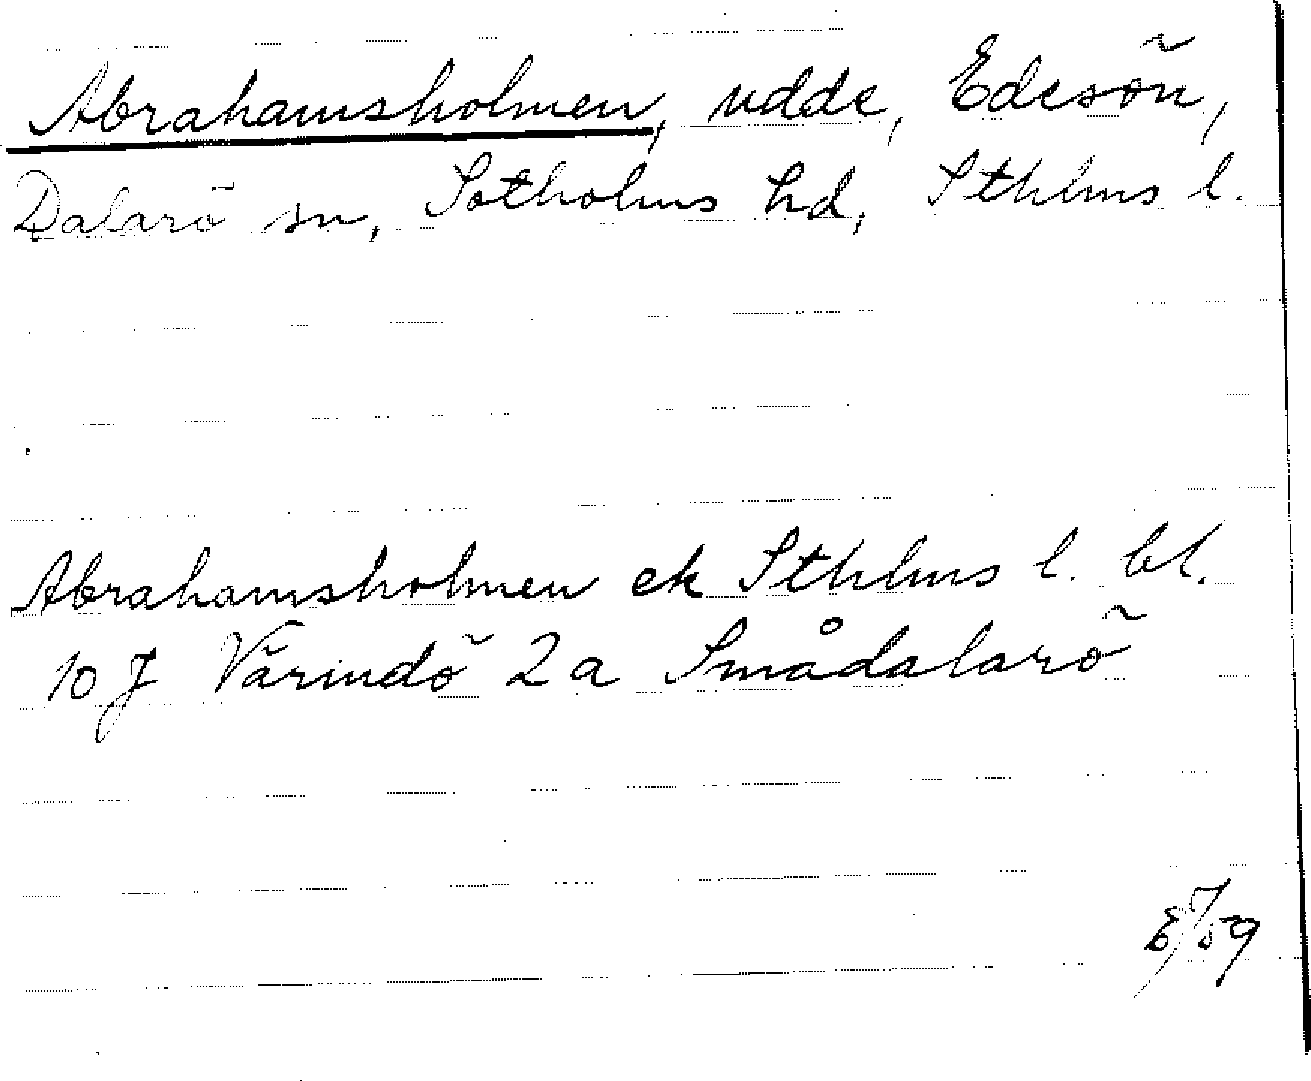 Abrahamsholmen, udde, Edesön,
Dalarö sn, Sotholms hd, Sthlms l.
Abrahamsholmen ek Sthlms l. bl.
10 J Värindö 2a Smådalarö